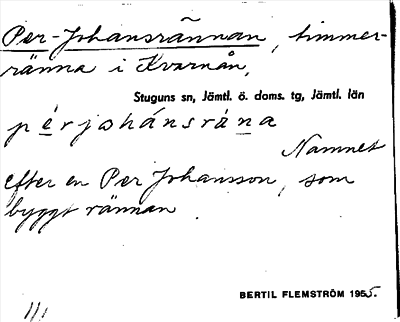 Per-Johansrännan, timmer-
ränna i Kvarnån,
Stuguns sn, Jämtl. ö. doms. tg, Jämtl. län
pérjohánsrä̀na
Namnet
efter en Per Johansson, som
byggt rännan.
BERTIL FLEMSTRÖM 1955.